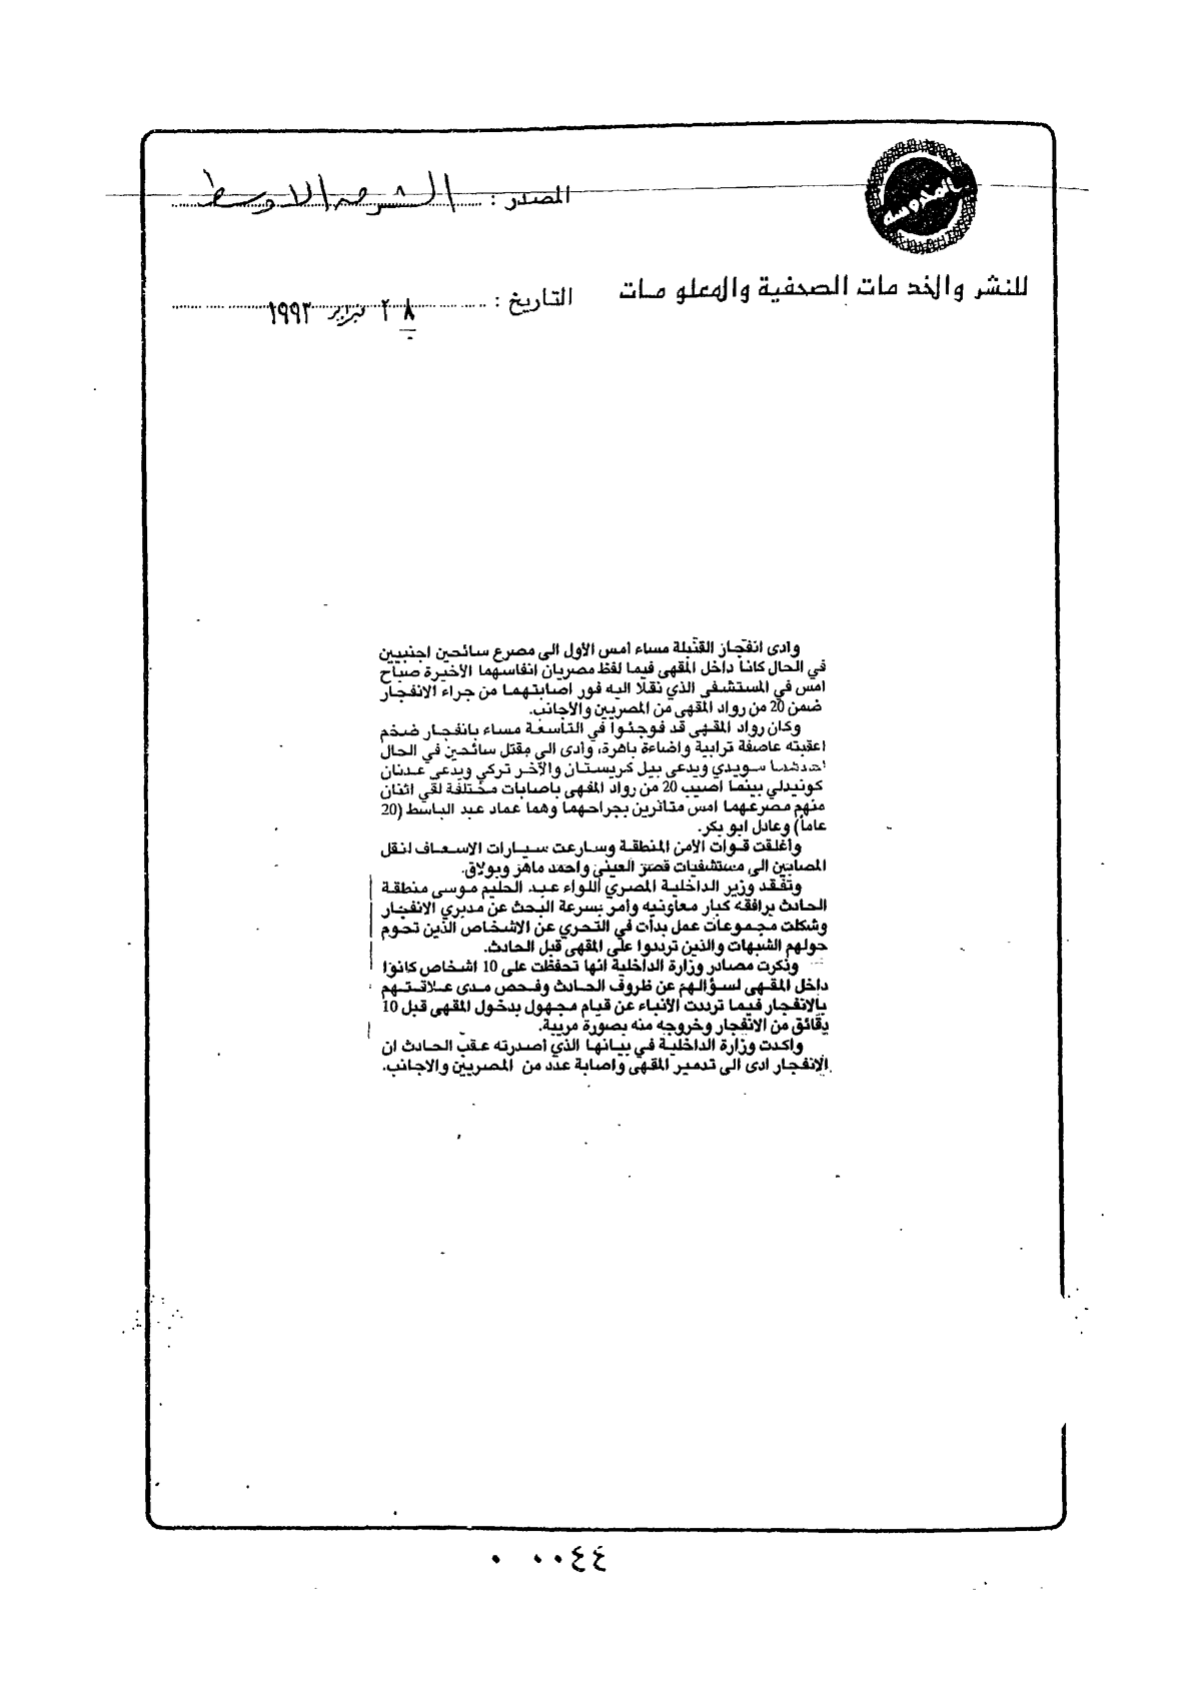 المصدر : الشرق الاوسط
للنشر والخدمات الصحفية والمعلومات
التاريخ : ٢٨ فبراير ١٩٩٣
وادى انفجار القنبلة مساء امس الأول الى مصرع سائحين اجنبيين
في الحال كانا داخل المقهى فيما لفظ مصريان انفاسهما الأخيرة صباح
امس في المستشفى الذي نقلا اليه فور اصابتهما من جراء الانفجار
ضمن 20 من رواد المقهى من المصريين والأجانب.
وكان رواد المقهى قد فوجئوا في التاسعة مساء بانفجار ضخم
اعقبته عاصفة ترابية واضاءة باهرة، وادى الى مقتل سائحين في الحال
احدهما سويدي ويدعى بيل كريستان والآخر تركي ويدعى عدنان
كونيدلي بينما اصيب 20 من رواد المقهى باصابات مختلفة لقي اثنان
منهم مصرعهما امس متاثرين بجراحهما وهما عماد عبد الباسط (20
عاماً) وعادل ابو بكر.
واغلقت قوات الأمن المنطقة وسارعت سيارات الاسعاف لنقل
المصابين الى مستشفيات قصر العيني واحمد ماهر وبولاق.
وتفقد وزير الداخلية المصري اللواء عبد الحليم موسى منطقة
الحادث يرافقه كبار معاونيه وامر بسرعة البحث عن مدبري الانفجار
وشكلت مجموعات عمل بدات في التحري عن الاشخاص الذين تحوم
حولهم الشبهات والذين ترددوا على المقهى قبل الحادث.
وذكرت مصادر وزارة الداخلية انها تحفظت على 10 اشخاص كانوا
داخل المقهى لسؤالهم عن ظروف الحادث وفحص مدى علاقتهم
بالانفجار فيما ترددت الأنباء عن قيام مجهول بدخول المقهى قبل 10
دقائق من الانفجار وخروجه منه بصورة مريبة.
واكدت وزارة الداخلية في بيانها الذي اصدرته عقب الحادث ان
الانفجار ادى الى تدمير المقهى واصابة عدد من المصريين والاجانب.
٠ ٠٠٤٤